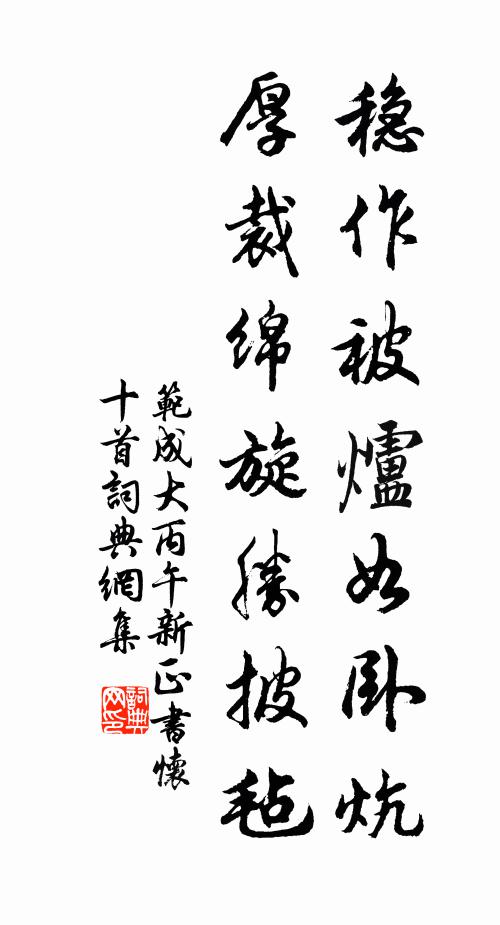 穩作被爐如卧炕
厚裁綿旋勝披毡
範成大丙午新正書懷
十首詞典網集
詞典
网印